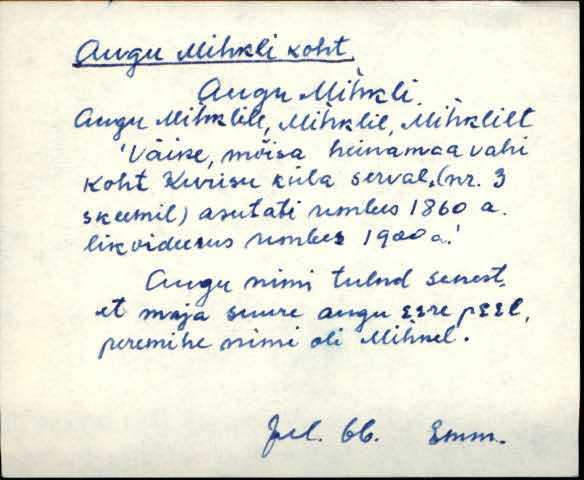 Augu Mihkli koht
Augu Mìhkli.
Augu Mìhklile, Mìhklil, Mìhklilt
'Väike, mõisa heinamaa vahi
koht Kurisu küla serval, (nr. 3
skeemil) asutati umbes 1860 a.
likvideerus umbes 1900 a.'
Augu nimi tulnd sellest,
et maja suure augu ääre pääl,
peremihe nimi oli Mihkel.
66. Emm.